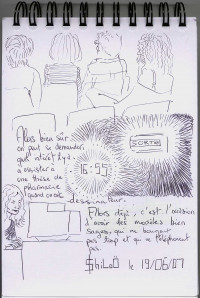 16:55
SORTIE
Alors bien sûr
on peut se demander,
quel intérêt il y a
à assister à
une thèse de
pharmacie
quand on est
dessinateur...
Alors déjà, c'est l'occasion
d'avoir des modèles bien
sages, qui ne bougent
pas trop et qui ne téléphonent
pas.
le 19/06/07